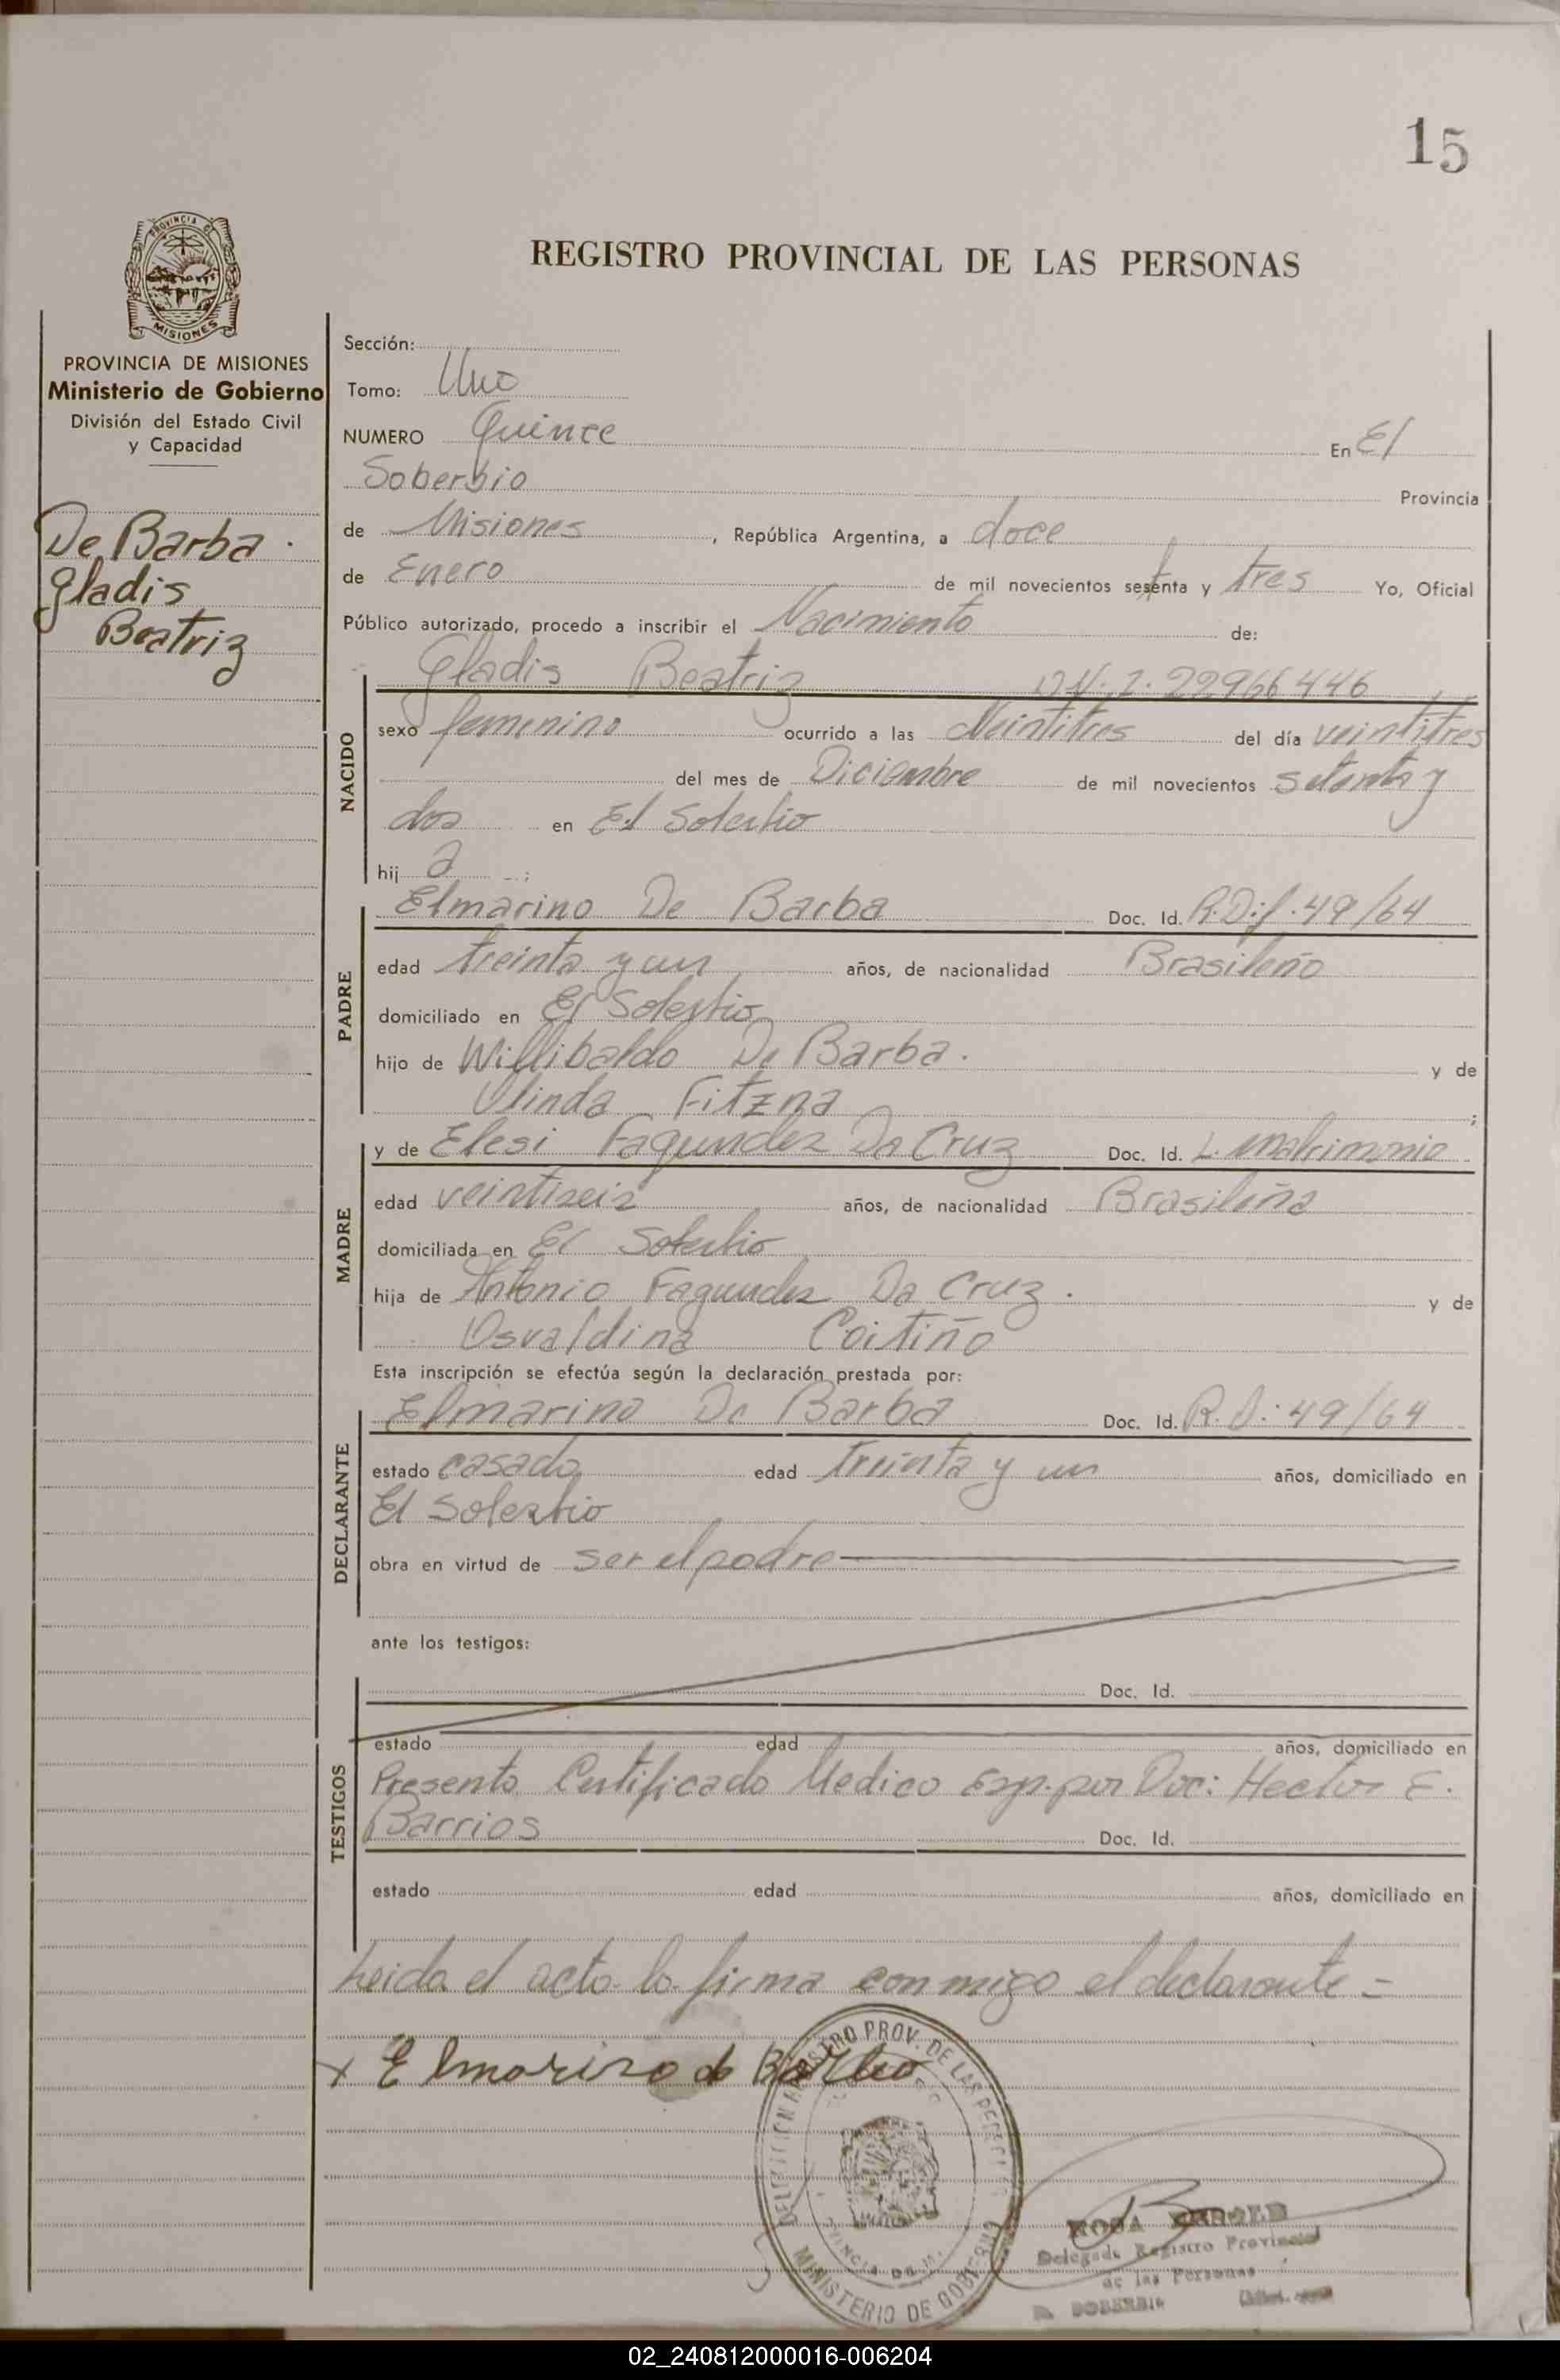 15
REGISTRO PROVINCIAL DE LAS PERSONAS
PROVINCIA DE
MISIONES
PROVINCIA DE MISIONES
Ministerio de Gobierno
División del Estado Civil
y Capacidad
De Barba.
Gladis
Beatriz
Sección:
Tomo: Uno
NUMERO Quince En El
Soberbio Provincia
de Misiones, República Argentina, a doce
de Enero de mil novecientos setenta y tres Yo, Oficial
Público autorizado, procedo a inscribir el Nacimiento de:
Gladis Beatriz D.N.I. 22966446
NACIDO
sexo femenino ocurrido a las Veintitres del día veintitres
del mes de Diciembre de mil novecientos setenta y
dos en El Soberbio
hij a :
PADRE
Elmarino De Barba Doc. Id. R.D.f. 49/64
edad treinta y un años, de nacionalidad Brasileño
domiciliado en El Soberbio
hijo de Willibaldo De Barba. y de
Ulinda Fitzna ;
MADRE
y de Elesi Fagundez Da Cruz Doc. Id. L. Matrimonio
edad veintiseis años, de nacionalidad Brasileña
domiciliada en El Soberbio
hija de Antonio Fagundez Da Cruz. y de
Osvaldina Coitiño
Esta inscripción se efectúa según la declaración prestada por:
DECLARANTE
Elmarino De Barba Doc. Id. R.D.: 49/64
estado casado edad treinta y un años, domiciliado en
El Soberbio
obra en virtud de ser el padre
ante los testigos:
TESTIGOS
Doc. Id.
estado edad años, domiciliado en
Presento Certificado Medico Exp. por Doc: Hector E.
Barrios Doc. Id.
estado edad años, domiciliado en
Leida el acta la firma conmigo el declarante =
x Elmarino de Barba
REGISTRO PROV. DE LAS PERSONAS
MINISTERIO DE GOBIERNO
ROSA
Delegada Registro Provincial
de las Personas
EL SOBERBIO
02_240812000016-006204